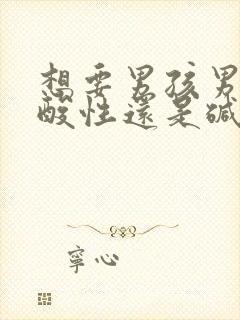 想要男孩男
酸性還是碱
寧心